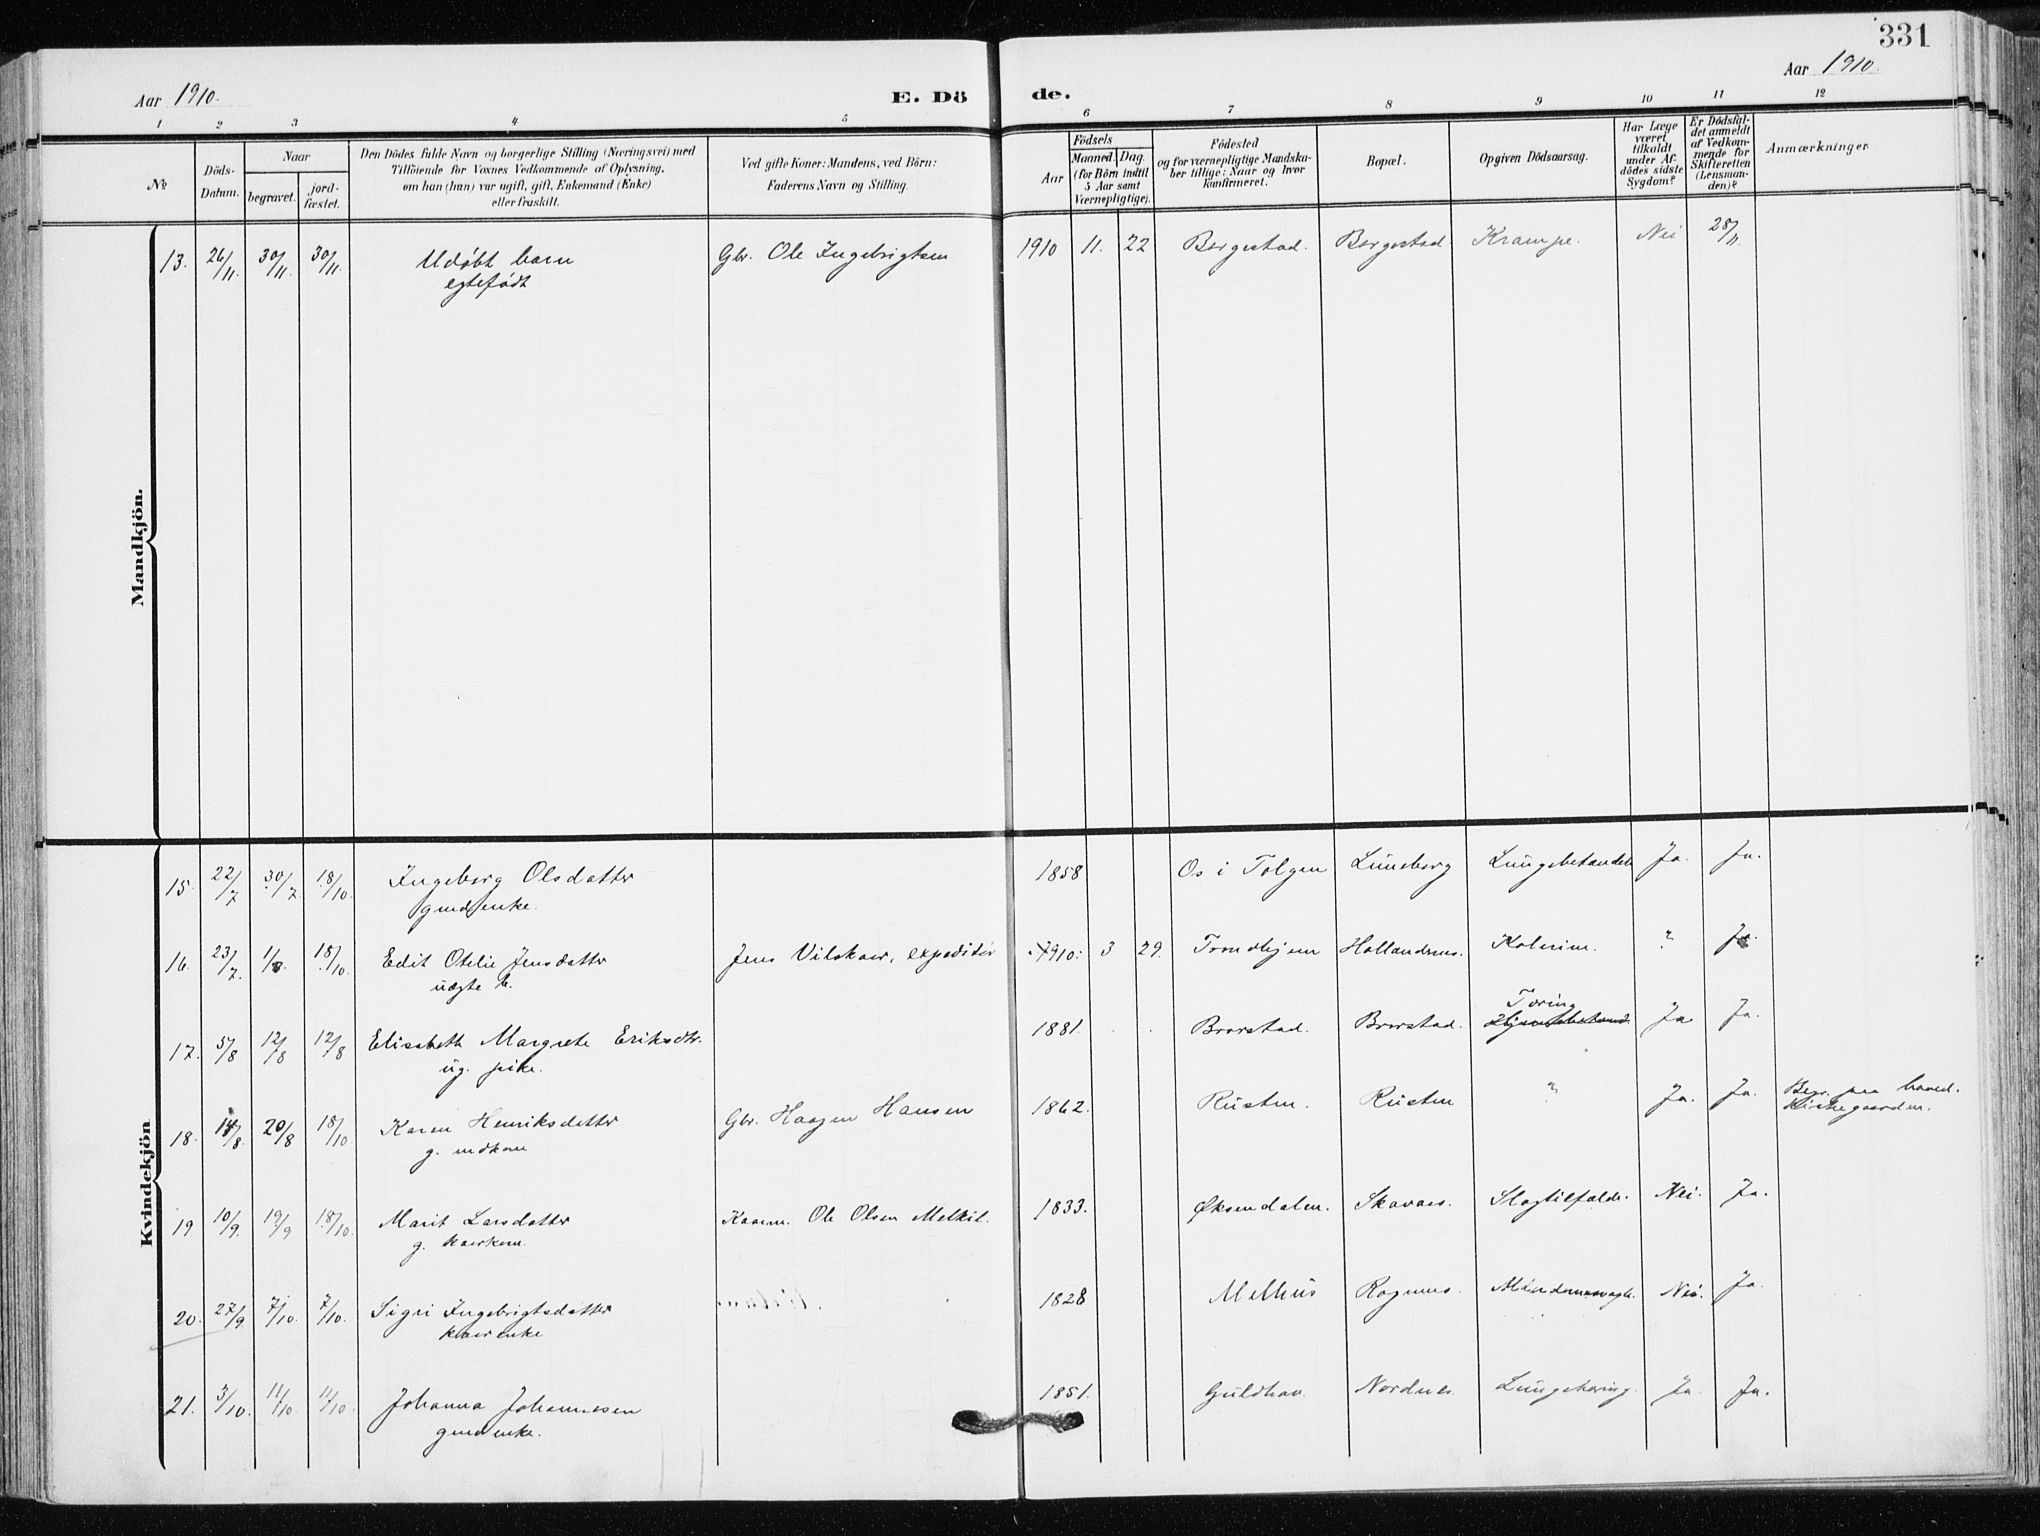 331
Aar 1910.
E. Dö
de.
Aar 1910.
1 2 3 4 5 6 7 8 9 10 11 12
№
Döds-
Datum.
Naar
begravet.
jord-
fæstet.
Den Dödes fulde Navn og borgerlige Stilling (Næringsvei) med
Tilföiende for Voxnes Vedkommende af Oplysning,
om han (hun) var ugift, gift, Enkemand (Enke)
eller fraskilt.
Ved gifte Koner: Mandens, ved Börn:
Faderens Navn og Stilling.
Födsels
Aar
Maaned. Dag.
(for Börn indtil
5 Aar samt
Værnepligtige).
Födested
og for værnepligtige Mandska-
ber tillige: Naar og hvor
konfirmeret.
Bopæl.
Opgiven Dödsaarsag.
Har Læge
været
tilkaldt
under Af-
dödes sidste
Sygdom?
Er Dödsfal-
det anmeldt
af Vedkom-
mende for
Skifteretten
(Lensman-
den)?
Anmærkninger
Mandkjön.
13. 26/11. 30/11. 30/11. Udøbt barn Gbr. Ole Ingebrigtsen 1910 11. 22 Borgestad. Borgestad. Krampe. Nei 28/11.
egtefødt
Kvindekjön
15. 22/7 30/7 18/10. Ingeborg Olsdatter 1858 Os i Tolgen Luneborg Lungebetændels Ja. Ja.
gmdenke.
16. 23/7. 18/10. Edit Otelie Jensdatter Jens Vilskaer, expeditør 1910. 3 29. Trondhjem Hollandsmo. Kolerine. " Ja.
uægte b.
17. 5/8 12/8 12/8 Elisabeth Margrete Eriksdtr. 1881. Brorstad. Brorstad. Tæring Ja Ja.
ug. pike.
18. 14/8. 20/8 18/10 Karen Henriksdatter Gbr. Haagen Hansen 1862. Rusten. Rusten " Ja. Ja. Begr. paa hoved-
g. mdkone kirkegaarden.
19 10/9. 19/9 18/10. Marit Larsdatter Kaarm. Ole Olsen Melkil. 1833. Øksendalen. Skavaas. Slagtilfælde. Nei. Ja.
g. kaarkone.
20. 27/9 7/10. 7/10. Sigri Ingebrigtsdatter 1828 Melhus Rognmo. Nei. Ja.
kaarenke
21. 3/10. 11/10. 11/10 Johanna Johannesen 1851. Guldhav. Nordnes. Lungetæring. Ja. Ja.
gmdenke.